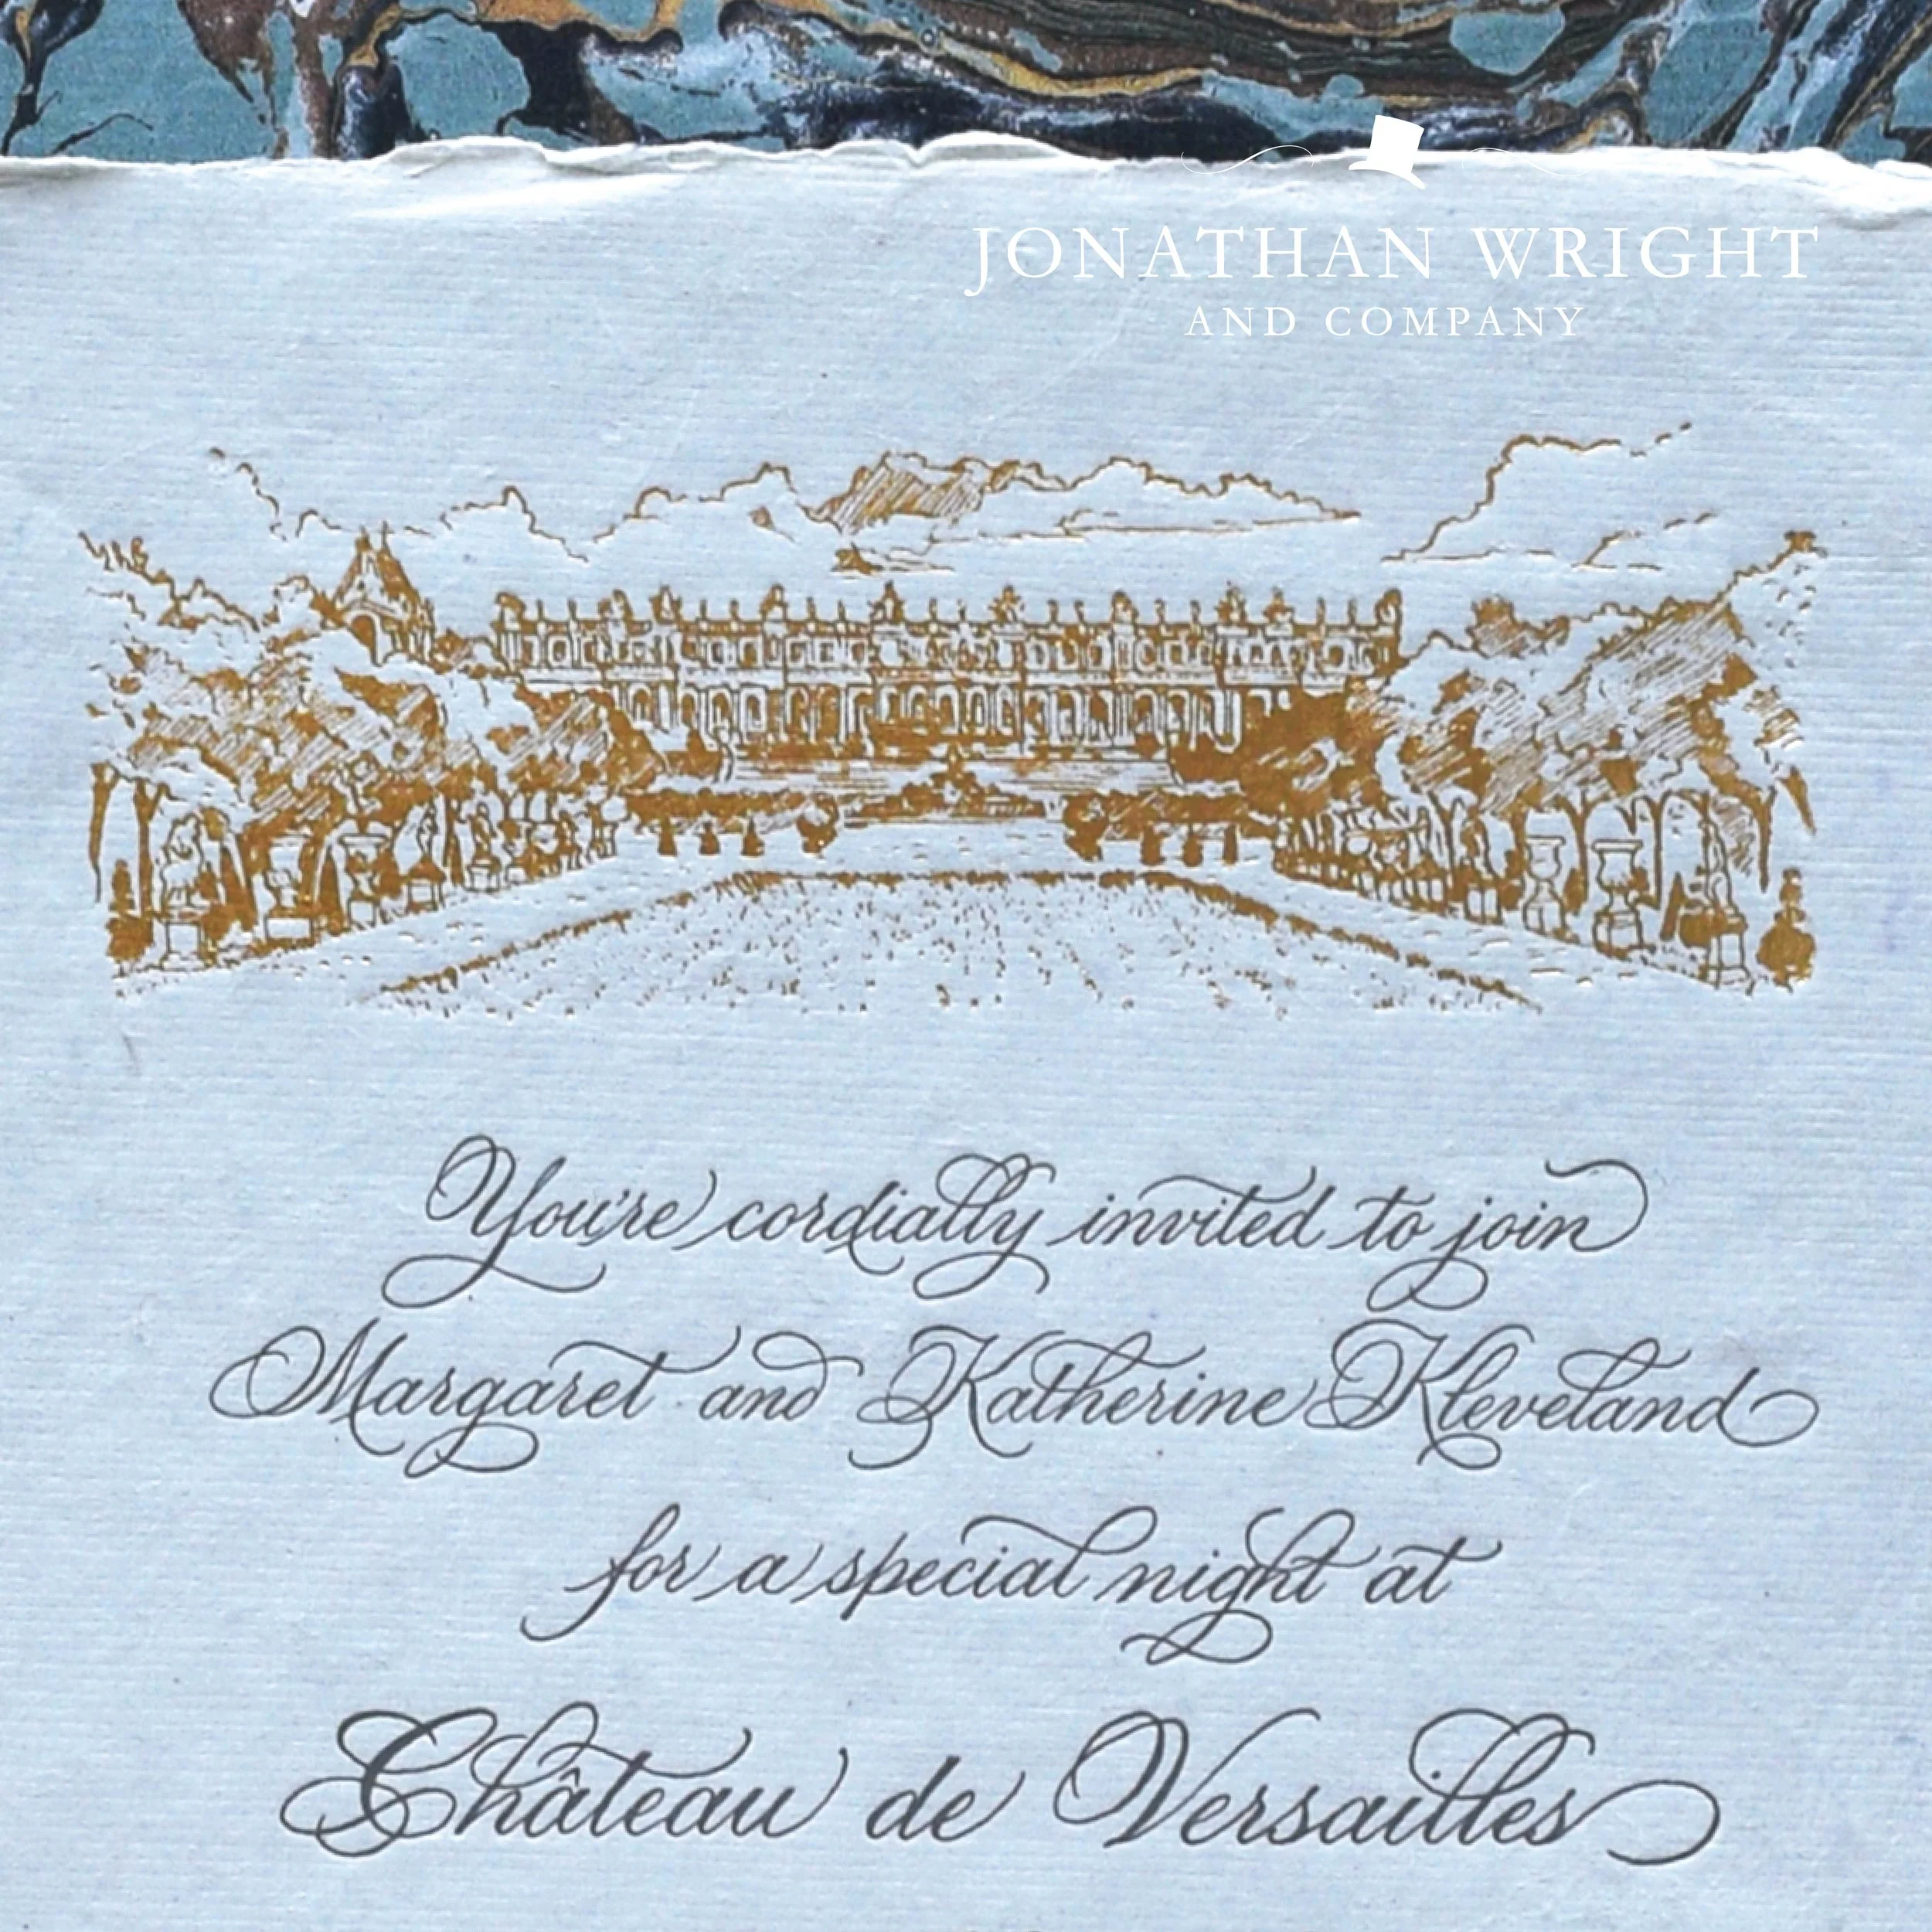 JONATHAN WRIGHT
AND COMPANY
You're cordially invited to join
Margaret and Katherine Kleveland
for a special night at
Château de Versailles